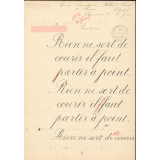 Rien ne sert de
courir il faut
partir à point.
Rien ne sert de
courir il faut
partir à point.
Rien ne sert de